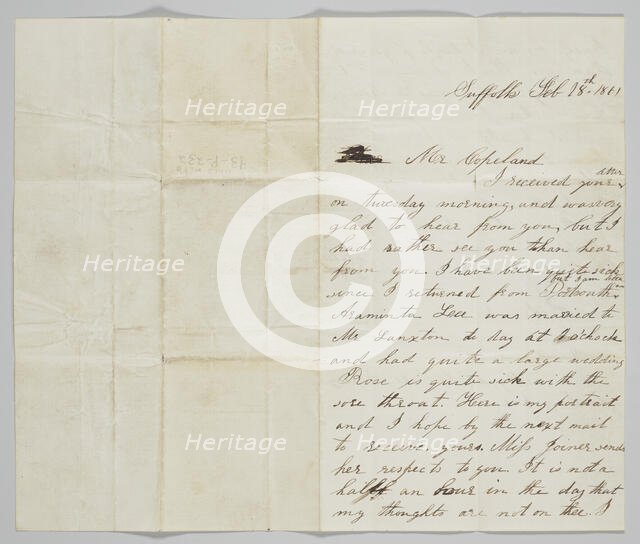 Suffolk Feb 18th 1861
Mr Copeland
I received your letter
on tuesday morning, and was very
glad to hear from you, but I
had rather see you than hear
from you. I have been quite sick
since I returned from
but I am
Araminta Lee was married to
Mr to day at o'clock
and had quite a large wedding
Rose is quite sick with the
sore throat. Here is my portrait
and I hope by the next mail
to receive yours. Miss Joiner sends
her respects to you. It is not a
half an hour in the day that
my thoughts are not on thee. I
Heritage
Heritage
Heritage
Heritage
Heritage
Heritage
Heritage
Heritage
Heritage
C